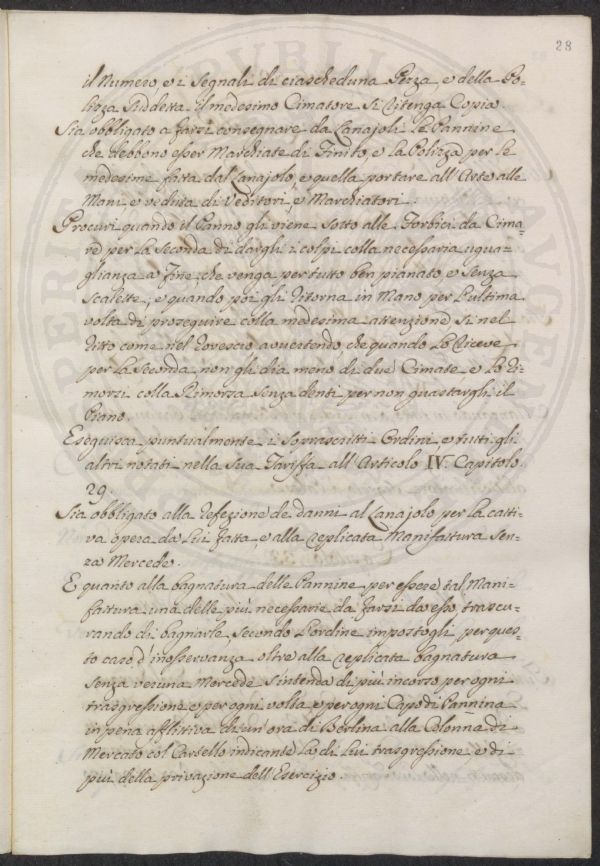 28
il Numero, e i Segnali di ciascheduna Pezza, e della Po-
lizza suddetta il medesimo Cimatore si ritenga Copia.
Sia obbligato a farsi consegnare da Lanajoli Le Pannine
che debbono esser Marchiate di Finito, e La Polizza per Le
medesime fatta dal Lanajolo, e quella portare all'Arte alle
Mani e veduta di Veditori, e Marchiatori.
Procuri quando il Panno gli viene sotto alle Forbici da Cima-
re per La Seconda di dargli i colpi colla necessaria ugua-
glianza a fine, che venga per tutto ben pianato e senza
Scalette; e quando poi gli ritorna in Mano per L'ultima
volta di proseguire colla medesima attenzione si nel
ritto come nel rovescio avvertendo, che quando Lo riceve
per La Seconda non gli dia meno di due Cimate e Lo ri-
morzi colla Rimorza senza denti per non guastargli il
Piano.
Eseguisca puntualmente i soprascritti Ordini, e tutti gli
altri notati nella sua Tariffa all'Articolo IV. Capitolo.
29.
Sia obbligato alla refezione de danni al Lanajolo per La catti-
va opera da Lui fatta, e alla replicata Manifattura sen-
za Mercede.
E quanto alla bagnatura delle Pannine per essere tal Mani-
fattura una delle più necessarie da farsi da esso, trascu-
rando di bagnarle secondo L'ordine impostogli per ques-
to caso d'inosservanza oltre alla replicata bagnatura
senza veruna Mercede s'intenda di più incorso per ogni
trasgressione e per ogni volta, e per ogni Capo di Pannina
in pena afflittiva di un'ora di Berlina alla Colonna di
Mercato col Cartello indicante La di Lui trasgressione, e di
più della privazione dell'Esercizio.